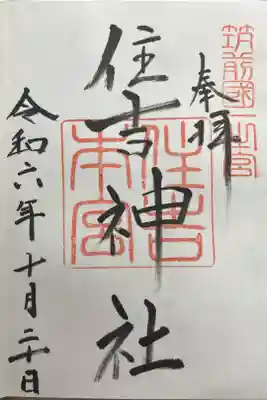 筑前國一之宮
奉拝
住吉神社
住吉本宮
令和六年十月二十日